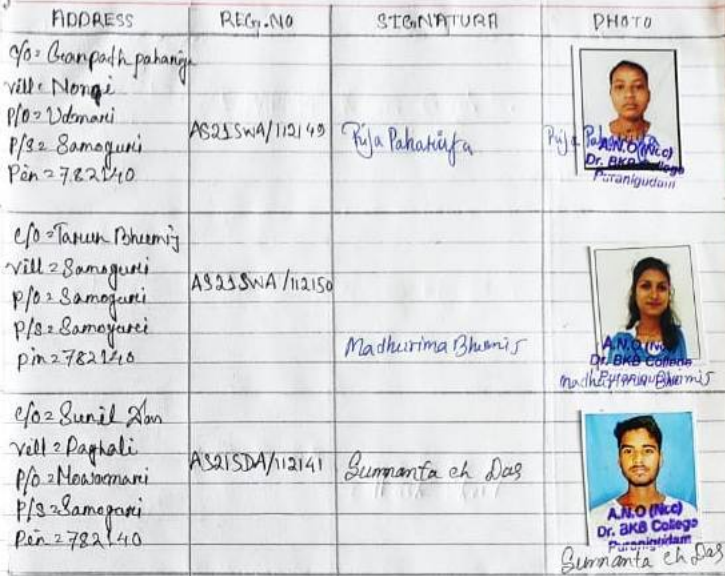 ADDRESS REG.NO SIGNATURA PHOTO
C/O = Ganpadh pahariya
Vill = Nongi
P/O = Udmari
P/S = Samoguri
Pin = 782140
AS21SWA/112149
Puja Pahariya
Puja Pahariya
A.N.O (Ncc)
Dr. BKB College
Puranigudam
C/O = Tarun Bhumij
Vill = Samoguri
P/O = Samoguri
P/S = Samoguri
Pin = 782140
AS21SWA/112150
Madhurima Bhumij
A.N.O (Ncc)
Dr. BKB College
Puranigudam
Madhurima Bhumij
C/O = Sunil Das
Vill = Paghali
P/O = Mowamari
P/S = Samogari
Pin = 782140
AS21SDA/112141
Sumanta ch Das
A.N.O (Ncc)
Dr. BKB College
Puranigudam
Sumanta ch Das